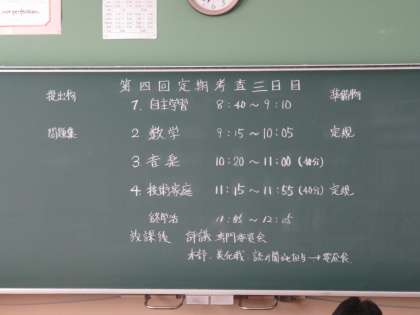 第四回定期考査三日目
提出物 準備物
1. 自主学習 8:40〜9:10
問題集 2. 数学 9:15〜10:05 定規
3. 音楽 10:20〜11:00 (40分)
4. 技術家庭 11:15〜11:55 (40分) 定規
終学活 12:05
放課後 評議 専門委員会